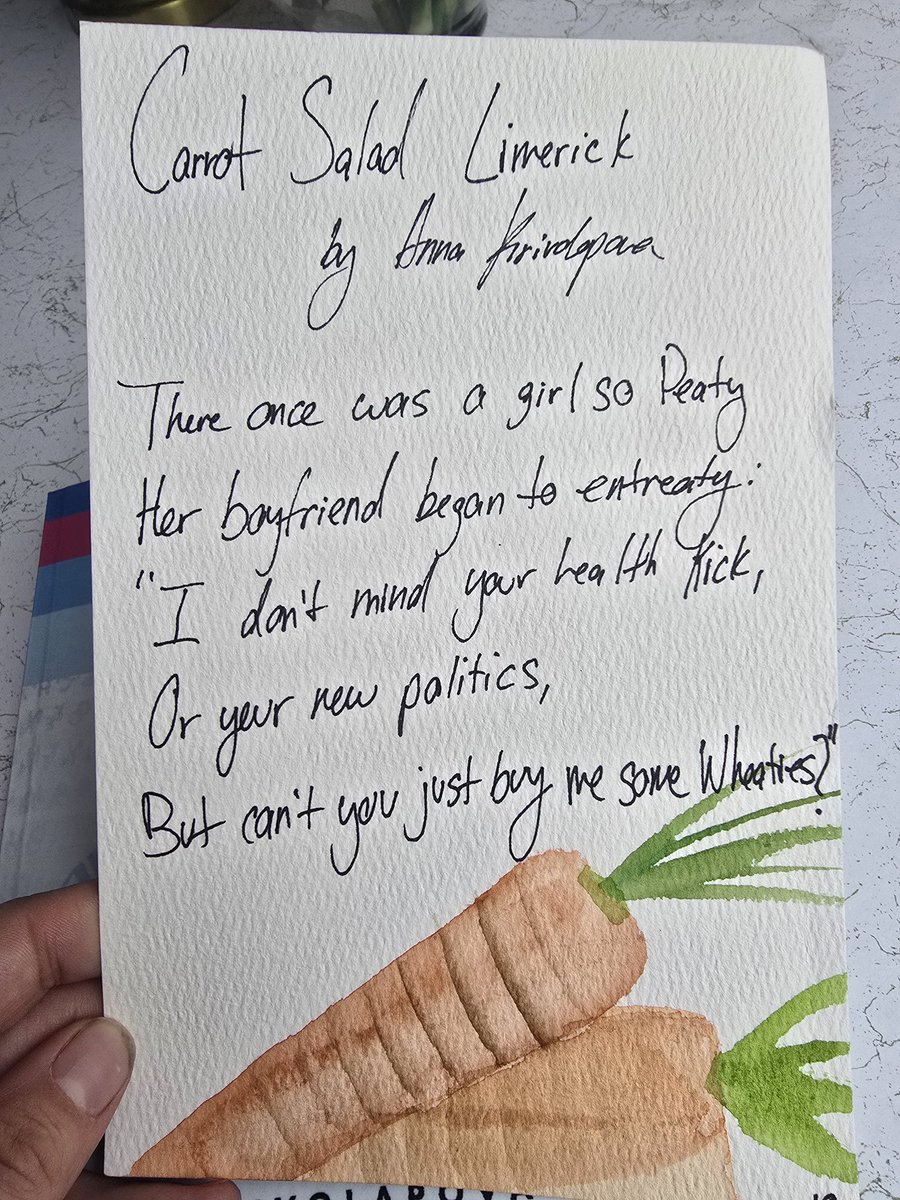 Carrot Salad Limerick
by Anna
There once was a girl so Peaty
Her boyfriend began to entreaty:
"I don't mind your health kick,
Or your new politics,
But can't you just buy me some Wheaties?"